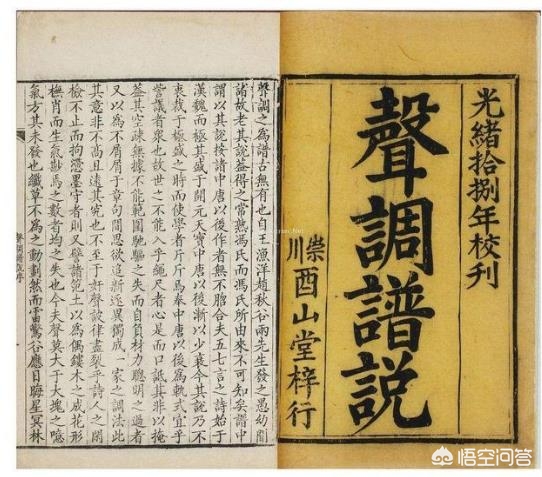 光緒拾捌年校刊
聲調譜說
崇川酉山堂梓行
聲調之爲譜古無有也自王漁洋趙秋谷兩先生發之愚幼聞
諸故老其說蓋得之常熟馮氏而馮氏所由來不可知矣譜中
謂以其說按諸中唐以後作者無不脗合夫五七言之詩始于
漢魏而極其盛于開元天寶中唐以後漸以少衰今其說乃不
衷裁于極盛之時而使學者斤斤焉奉中唐以後爲軌式宜乎
訾議者衆也故世之不能入乎繩尺者心是而口詆其非以掩
蓋其空疎無據不能範圍馳驅之失而自負材力聰明之過者
又以爲不屑屑于章句間思欲追新逐異獨成一家之調法此
其意非不高且遠其究也不至于奸聲詖律盡裂乎詩人之閑
檢不止而拘墨守者則又譬諸範土以爲偶鏤木之成花形
橅肖而生氣尠焉之數者均之失也今夫聲莫大于大塊之噫
氣方其未發也纖草不爲之動劃然而雷驚谷應日晦星冥林
聲調譜說序
悟空问答